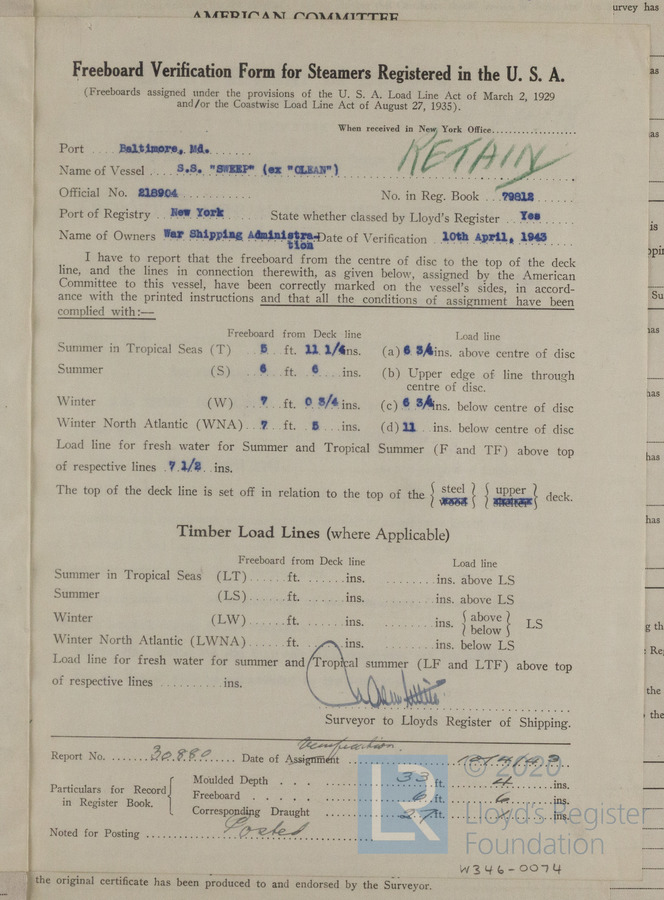 AMERICAN COMMITTEE
urvey has
Freeboard Verification Form for Steamers Registered in the U. S. A.
(Freeboards assigned under the provisions of the U. S. A. Load Line Act of March 2, 1929
and/or the Coastwise Load Line Act of August 27, 1935).
When received in New York Office
RETAIN
Port Baltimore, Md.
Name of Vessel S.S. "SWEEP" (ex "CLEAN")
Official No. 218904 No. in Reg. Book 79812
Port of Registry New York State whether classed by Lloyd's Register Yes
Name of Owners War Shipping Administra- Date of Verification 10th April, 1943
tion
I have to report that the freeboard from the centre of disc to the top of the deck
line, and the lines in connection therewith, as given below, assigned by the American
Committee to this vessel, have been correctly marked on the vessel's sides, in accord-
ance with the printed instructions and that all the conditions of assignment have been
complied with:—
Freeboard from Deck line Load line
Summer in Tropical Seas (T) 5 ft. 11 1/4 ins. (a) 6 3/4 ins. above centre of disc
Summer (S) 6 ft. 6 ins. (b) Upper edge of line through
centre of disc.
Winter (W) 7 ft. 0 3/4 ins. (c) 6 3/4 ins. below centre of disc
Winter North Atlantic (WNA) 7 ft. 5 ins. (d) 11 ins. below centre of disc
Load line for fresh water for Summer and Tropical Summer (F and TF) above top
of respective lines 7 1/2 ins.
The top of the deck line is set off in relation to the top of the { steel } { upper } deck.
wood shelter
Timber Load Lines (where Applicable)
Freeboard from Deck line Load line
Summer in Tropical Seas (LT) ft. ins. ins. above LS
Summer (LS) ft. ins. ins. above LS
Winter (LW) ft. ins. ins. { above below } LS
Winter North Atlantic (LWNA) ft. ins. ins. below LS
Load line for fresh water for summer and Tropical summer (LF and LTF) above top
of respective lines ins.
Surveyor to Lloyds Register of Shipping.
Verification
Report No. 30880 Date of Assignment 10/4/43
Particulars for Record in Register Book. Moulded Depth 33 ft. 4 ins.
Freeboard 6 ft. 6 ins.
Corresponding Draught 27 ft. ins.
Noted for Posting Posted
© 2020
LR
Lloyd's Register
Foundation
W346-0074
the original certificate has been produced to and endorsed by the Surveyor.